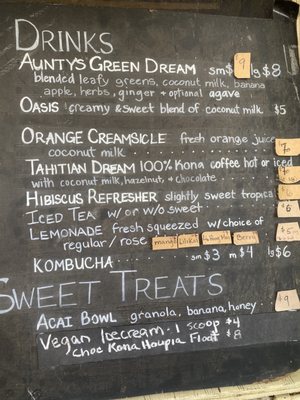 DRINKS
AUNTY'S GREEN DREAM sm$ 9 lg $8
blended leafy greens, coconut milk, banana
apple, herbs, ginger + optional agave
OASIS creamy & sweet blend of coconut milk $5
ORANGE CREAMSICLE fresh orange juice
coconut milk
TAHITIAN DREAM 100% Kona coffee hot or iced
with coconut milk, hazelnut, + chocolate
HIBISCUS REFRESHER slightly sweet tropical
ICED TEA w/ or w/o sweet $6
LEMONADE fresh squeezed w/ choice of $5
regular / rose mango Lilikoi Berry $6
KOMBUCHA sm $3 m $4 lg $6
SWEET TREATS
ACAI BOWL granola, banana, honey $9
Vegan Icecream · 1 scoop $4
choc Kona Houpia Float $8